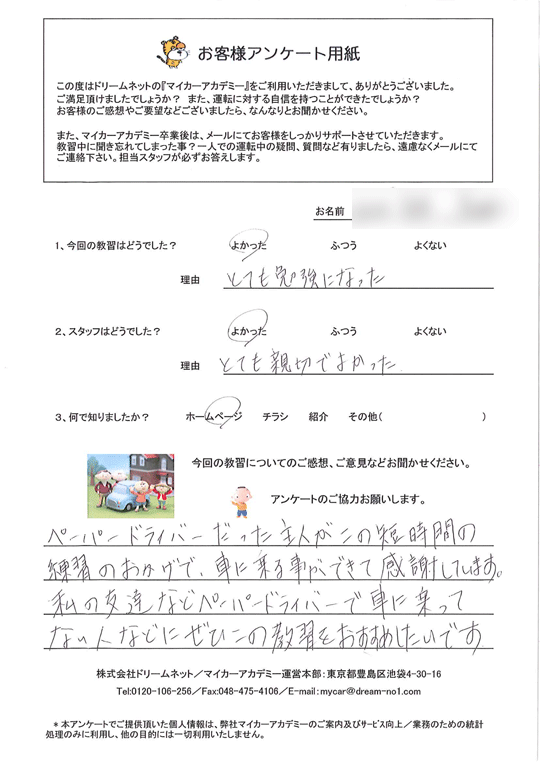 お客様アンケート用紙
この度はドリームネットの『マイカーアカデミー』をご利用いただきまして、ありがとうございました。
ご満足頂けましたでしょうか？ また、運転に対する自信を持つことができたでしょうか？
お客様のご感想やご要望などございましたら、なんなりとお聞かせください。
また、マイカーアカデミー卒業後は、メールにてお客様をしっかりサポートさせていただきます。
教習中に聞き忘れてしまった事？一人での運転中の疑問、質問など有りましたら、遠慮なくメールにて
ご連絡下さい。担当スタッフが必ずお答えします。
お名前
1、今回の教習はどうでした？ よかった ふつう よくない
理由 とても勉強になった
2、スタッフはどうでした？ よかった ふつう よくない
理由 とても親切でよかった
3、何で知りましたか？ ホームページ チラシ 紹介 その他( )
今回の教習についてのご感想、ご意見などお聞かせください。
アンケートのご協力お願いします。
ペーパードライバーだった主人がこの短時間の
練習のおかげで、車に乗る事ができて感謝しています。
私の友達などペーパードライバーで車に乗って
ない人などにぜひこの教習をおすすめしたいです
株式会社ドリームネット／マイカーアカデミー運営本部：東京都豊島区池袋4-30-16
Tel:0120-106-256／Fax:048-475-4106／E-mail:mycar@dream-no1.com
＊本アンケートでご提供頂いた個人情報は、弊社マイカーアカデミーのご案内及びサービス向上／業務のための統計
処理のみに利用し、他の目的には一切利用いたしません。